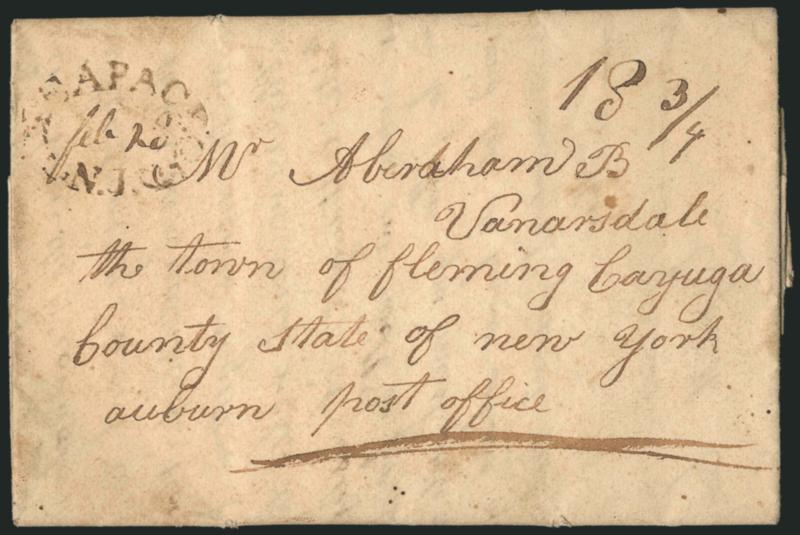 18 3/4
feb 20
N.J.
Mr Aberaham B
Vanarsdale
the town of fleming Cayuga
County state of new York
auburn post office